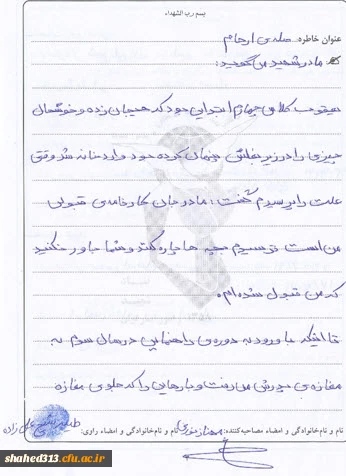 بسم رب الشهداء
عنوان خاطره: صله ی ارحام
مادر شهید می گوید:
یعقوب کلاس چهارم ابتدایی بود که هیجان زده و خوشحال
چیزی را در زیر بغلش پنهان کرده بود وارد خانه شد وقتی
علت را پرسیدم گفت: مادر جان کارنامه ی قبولی
من است ترسیدم بچه ها پاره کنند و شما باور نکنید
که من قبول شده ام.
تا اینکه با ورود به دوره ی راهنمایی در سال سوم به
مغازه ی پدرش می رفت و بارهایی را که جلوی مغازه
نام و نام خانوادگی و امضاء مصاحبه کننده: نام و نام خانوادگی و امضاء راوی:
shahed313.cfu.ac.ir